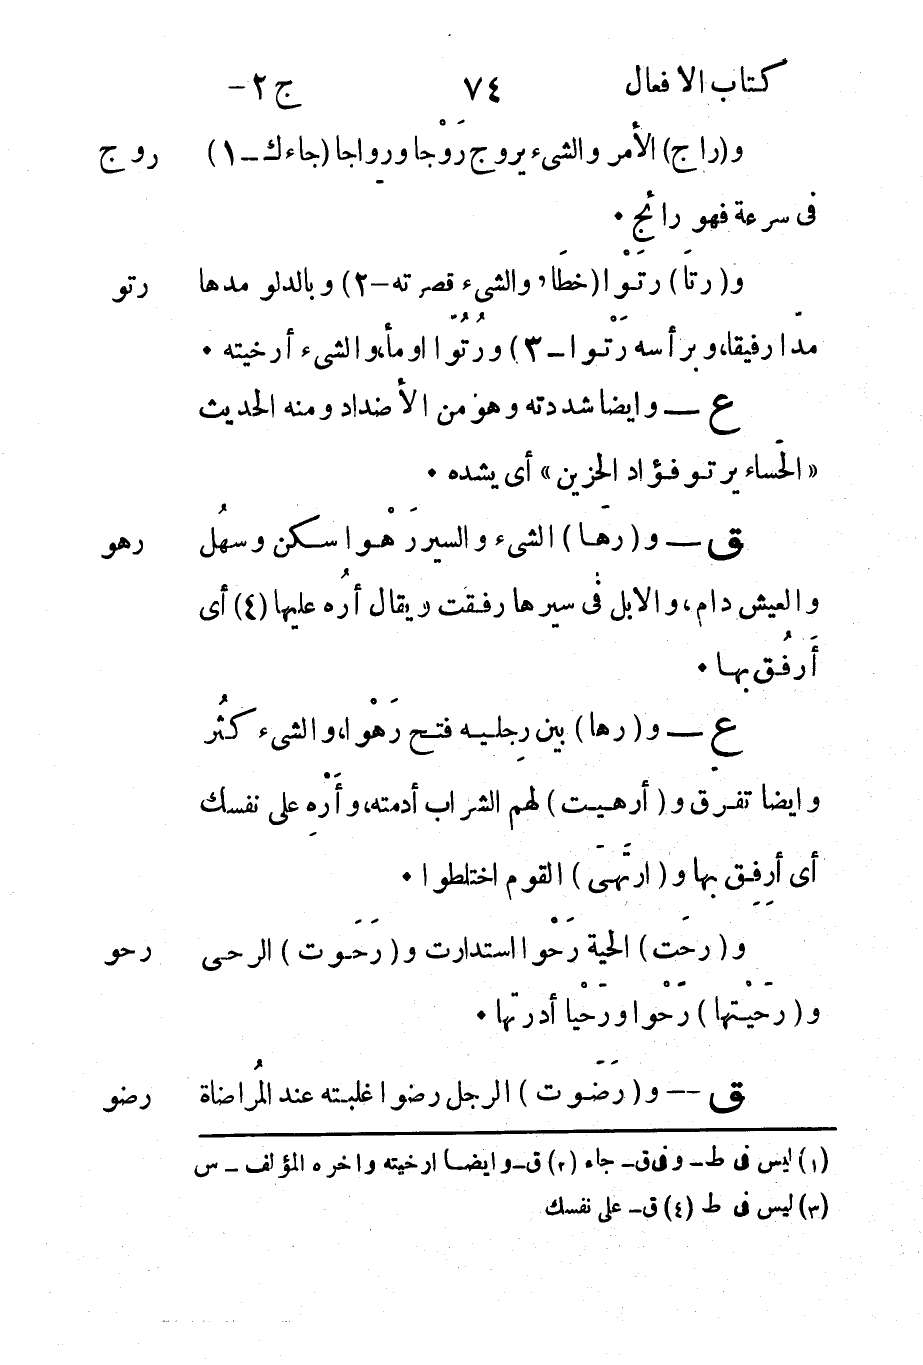 كتاب الافعال ٧٤ ج ٢-
و(راج) الأمر والشىء يروج رَوْجا ورواجا (جاءك - ١) روج
فى سرعة فهو رائج ٠
و(رتا) رتَوْا (خطَا، والشىء قصرته - ٢) وبالدلو مدها رتو
مدّا رفيقا، وبرأسه رَتْوا - ٣) ورُتُوّا اومأ، والشىء أرخيته ٠
ع — وايضا شددته وهو من الأضداد ومنه الحديث
«الحَساء يرتو فؤاد الحزين» أى يشده ٠
ق — و(رهَا) الشىء والسير رَهْوا سكن وسهُل رهو
والعيش دام، والابل فى سيرها رفقت ويقال أرُه عليها (٤) أى
أَرفُق بها ٠
ع — و(رها) بين رِجليه فتح رَهْوا، والشىء كثُر
وايضا تفرق و(أرهيت) لهم الشراب أدمته، وأَرْهِ على نفسك
أى أرِفِق بها و(ارتَهَى) القوم اختلطوا ٠
و(رحَت) الحية رَحْوا استدارت و(رَحَوت) الرحى رحو
و(رحَيْتها) رَحْوا ورَحْيا أدرتها ٠
ق — و(رَضَوت) الرجل رضوا غلبته عند المُراضاة رضو
(١) ليس فى ط - وفى ق - جاء (٢) ق - وايضا ارخيته واخره المؤلف - س
(٣) ليس فى ط (٤) ق - على نفسك